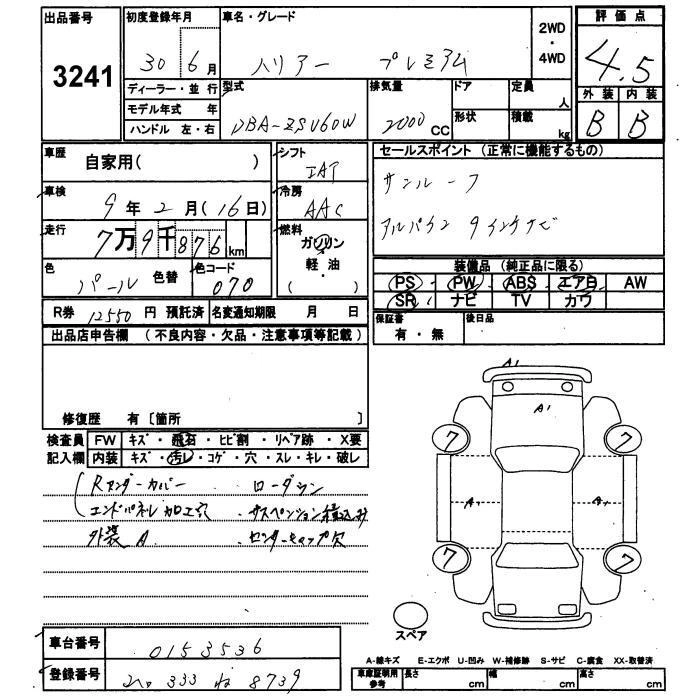 出品番号 初度登録年月 車名・グレード 2WD・4WD 評価点
3241 30 6月 ハリアー プレミアム 4.5
ディーラー・並行 型式 排気量 ドア 定員 人 外装 内装
モデル年式 年 DBA-ZSU60W 2000 CC 形状 積載 kg B B
ハンドル 左・右
車歴 自家用( ) シフト IAT セールスポイント (正常に機能するもの)
車検 9年2月(16日) 冷房 AAC サンルーフ
走行 7万9千876km 燃料 ガソリン・軽油・( ) アルパイン 9インチナビ
色 パール 色替 色コード 070 装備品 (純正品に限る)
PS PW ABS エアB AW
SR ナビ TV カワ
R券 12550円 預託済 名変通知期限 月 日 保証書 有・無 後日品
出品店申告欄 (不良内容・欠品・注意事項等記載)
修復歴 有〔箇所 〕
検査員 FW キズ・飛石・ヒビ割・リペア跡・X要
記入欄 内装 キズ・汚レ・コゲ・穴・スレ・キレ・破レ
Rアンダーカバー ・ローダウン
エンドパネル加工穴 ・サスペンション積込み
外装 A ・センターキャップ欠
A1
A1
7 7
A1 A1
7 7
スペア
車台番号 0153536
登録番号 333 ね 8739
A-線キズ E-エクボ U-凹み W-補修跡 S-サビ C-腐食 XX-取替済
車庫証明用参考 長さ cm 幅 cm 高さ cm